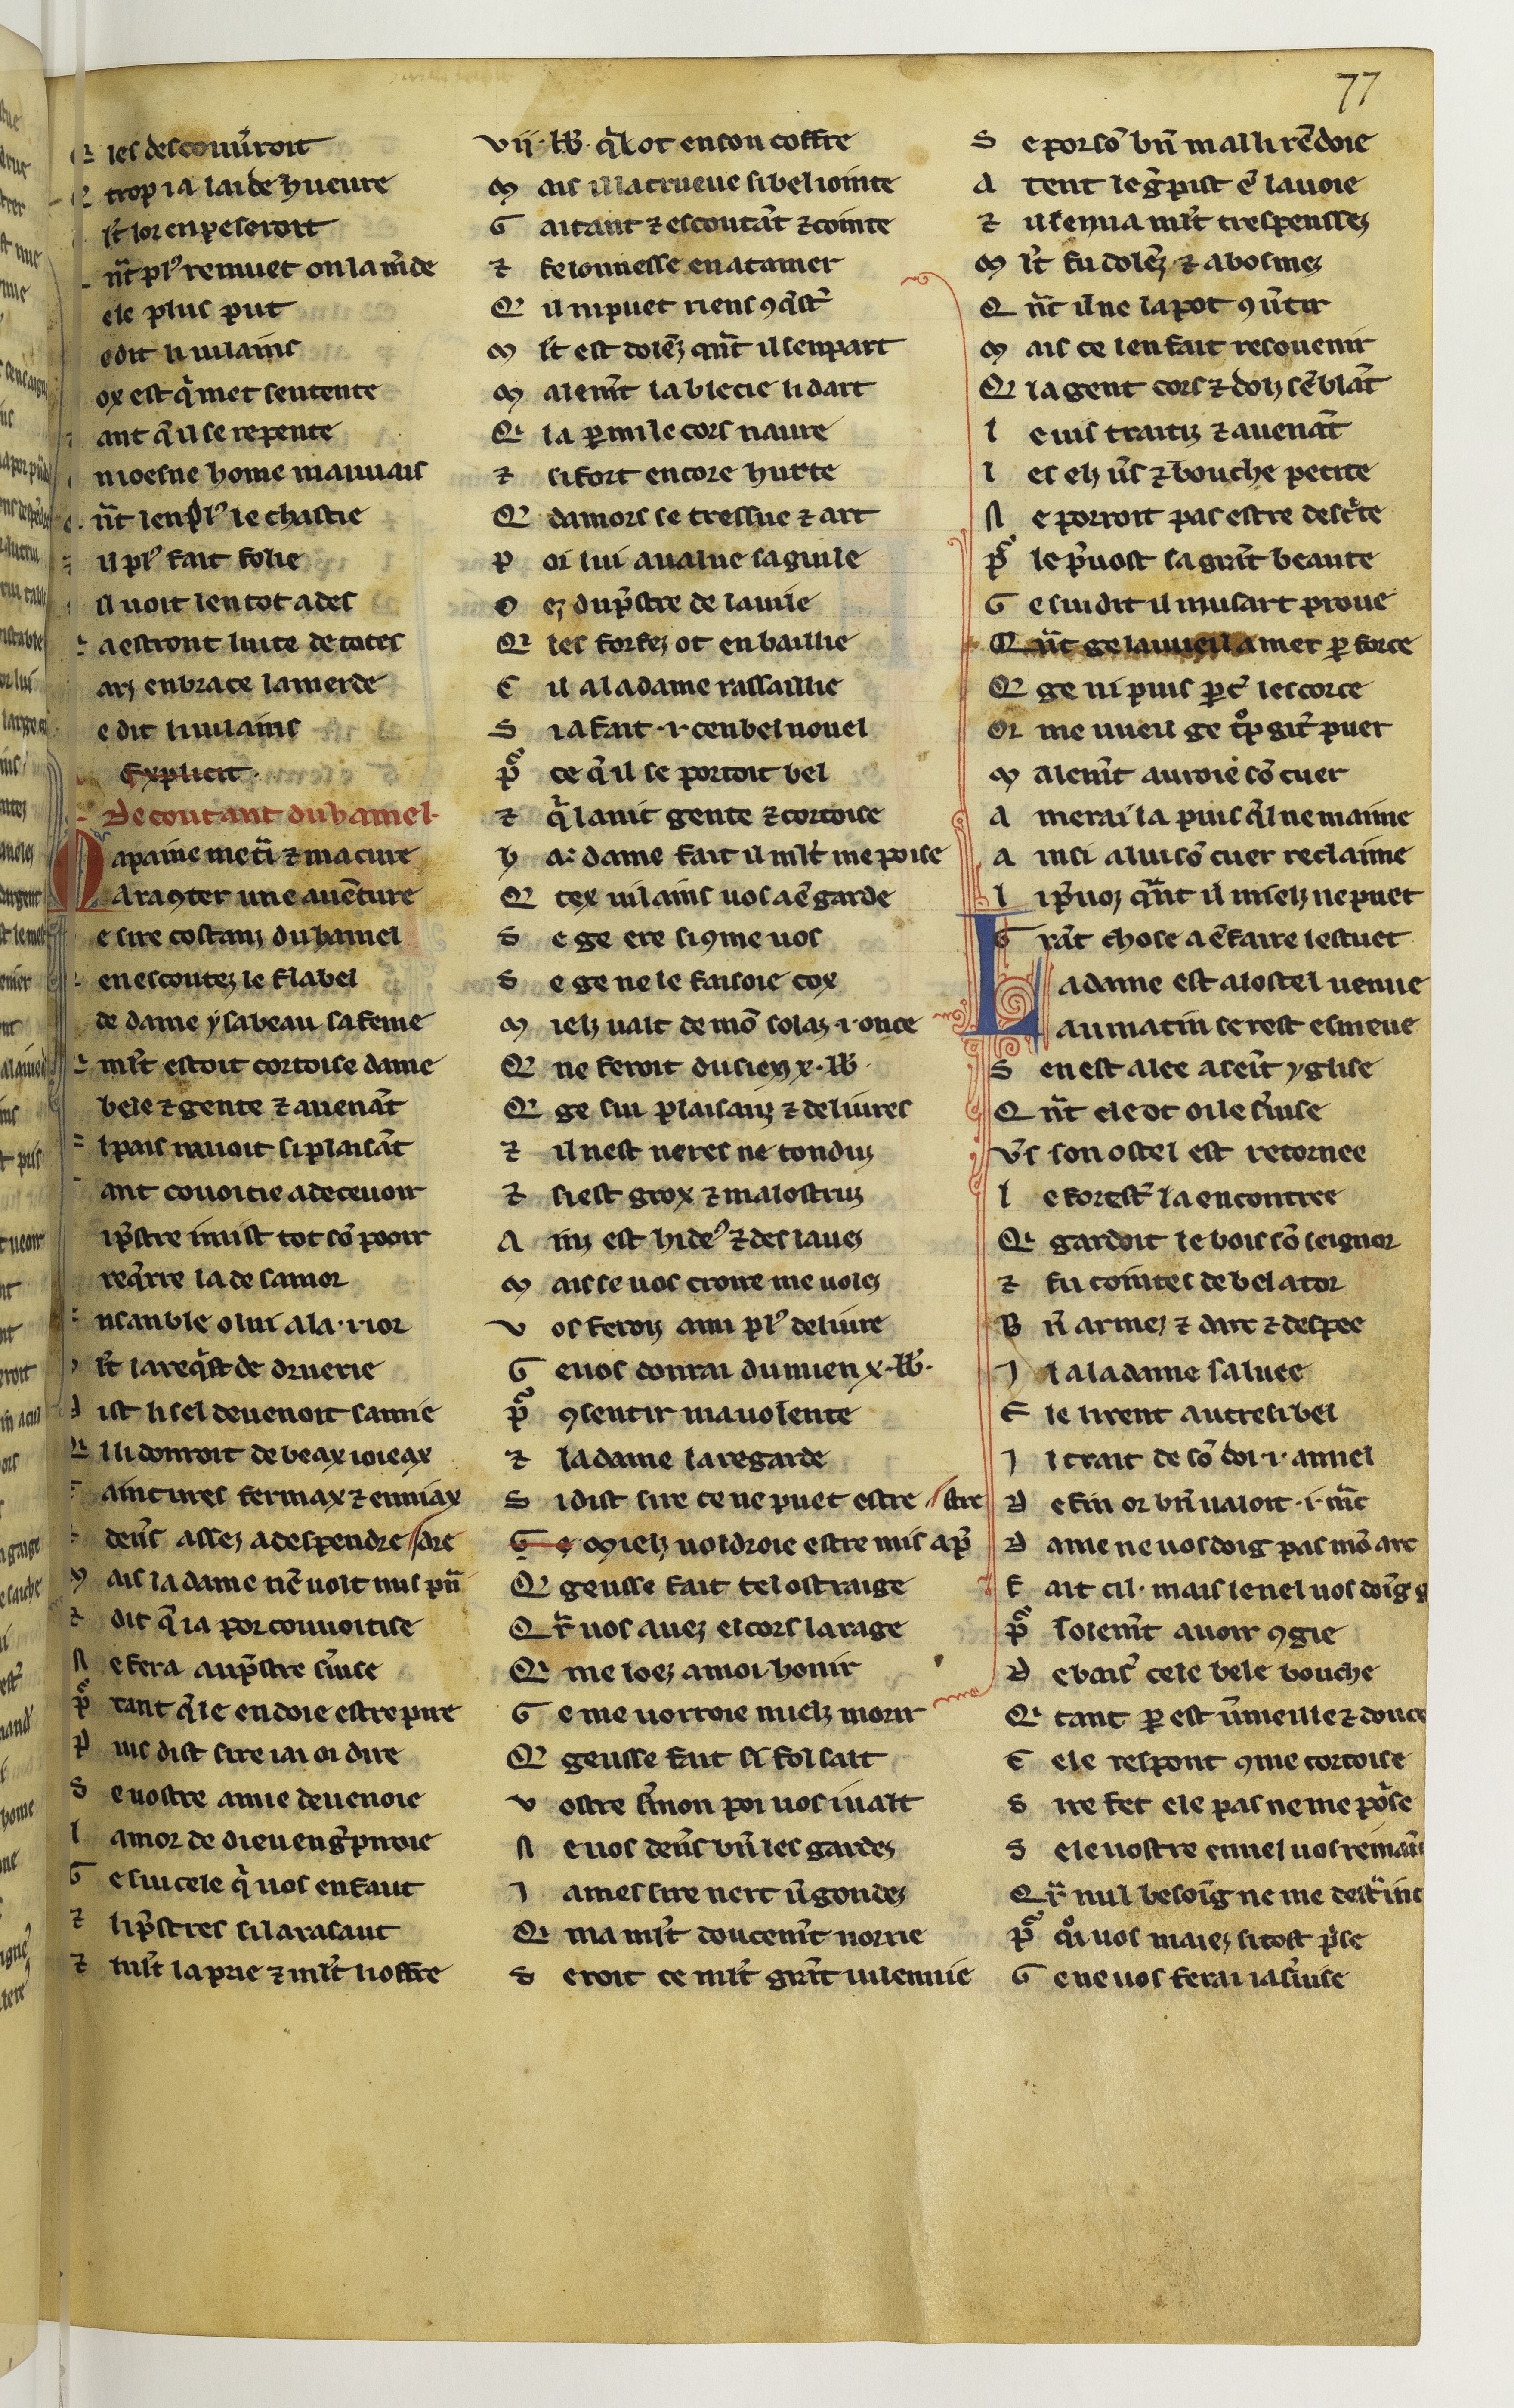 77
Q ies descouu̾roit
Q trop i a laide hueure
l̾t lor enpeseroit
n̄t pl9 remuet on la m̾de
ele plus put
e dit li uilains
ox est q̾ met sentente
ant q̄ il se repente
moesne home mauuais
n̄t len pl9 le chastie
il pl9 fait folie
il uoit len tot ades
a estront luite de totes
arz enbrace la merde
e dit li uilains
Explicit.
De coutant du hamel.
M a paine met̾ & ma cure
A raꝯter une auēture
e sire costanz du hamel
en escoutez le flabel
de dame ysabeau sa feme
ml̾t estoit cortoise dame
bele & gente & auenāt
l pais nauoit si plaisāt
ant couoitie a deceuoir
i p̾stre i mist tot sō pooir
req̾rre la de samor
nsanble o lui a la .i. ior
l̾t la req̾st de druerie
D ist li sel deuenoit samie
Q l li donroit de beax ioieax
C aintures fermax & enniax
den̾s assez a despendre // dre
M ais la dame nē uolt nus pn̄
& dit q̄ ia por conuoitise
N e fera au p̾stre s̾uise
P̾ tant q̾le en doie estre pire
P uis dist sire iai oi dire
S e uostre amie deuenoie
L amor de dieu en g̾pnroie
G e sui cele q̾ uos en faut
& li p̾stres sil arasaut
& ml̾t la prie & ml̾t li offre
Vii. lb̄. q̾l ot en son coffre
M ais il la trueue si bel iointe
G aitant & escoutāt & cointe
& felonnesse en atamer
Q il ni puet riens ꝯq̾st̾
M l̾t est dolēz q̄nt il sen part
M alem̄t la blecie li dart
Q i la p̱mi le cors naure
& si fort encore hurte
Q damors se tressue & art
P oi lui aualue sa guile
O ez du p̾stre de la uile
Q i les forfez ot en baillie
C il a la dame rassaillie
S i a fait .i. cenbel nouel
P̾ ce q̄ il se portoit bel
& q̾l auit gente & cortoise
H a: dame fait il ml̾t me poise
Q tex uilains uos a ē garde
S e ge ere si ꝯme uos
S e ge ne le faisoie cox
M ielz ualt de mō solaz .i. once
Q ne feroit du sien x. lb̄.
Q ge sui plaisanz & deliures
& il nest ne res ne tonduz
& si est grox & malostruz
A inz est hide9 & des lauez
M ais se uos croire me uolez
V os feroiz ami pl9 deliure
G e uos donrai du mien x. lb̄.
P̾ ꝯsentir ma uolente
& la dame la regarde
S i dist sire ce ne puet estre // stre
G e Mielz uoldroie estre mis a p̱
Q geusse fait tel ostraige
Q r̾ uos auez el cors la rage
Q i me loez a moi honir
G e me uorroie mielz morir
Q geusse fait si fol sait
V ostre s̾mon poi uos i ualt
N e uos den̾s bn̄ les gardez
J ames sire nert ū gondez
Q i ma ml̾t doucem̄t norrie
S eroit ce ml̾t gr̄nt uilennie
S e por sō bn̄ mal li rēdoie
A tent le g̾pist ē la uoie
& il sen ua ml̾t trespensez
M l̾t fu dolēz & abosmez
Q n̄t il ne la pot ꝯu̾tir
M ais ce len fait resouenir
Q i la gent cors & dolz sēblāt
L e uis traitiz & auenāt
L es elz u̾s & bouche petite
N e porroit pas estre descr̾te
P̾ le p̾uost sa gr̄nt beaute
G e sui dit il musart proue
Q n̄t ge la uueil amer p̱ force
Q ge ni puis p̱ c̾ lescorce
Or me uueil ge t̊p git̾ puer
M alem̄t auroie sō cuer
A merai la puis q̾l ne maime
A insi a lui sō cuer reclaime
L i p̾uoz q̄nt il mielz ne puet
G rāt chose a ē faire lestuet
L a dame est a lostel uenue
au matin se rest esmeue
S en est alee a sei̾t yglise
Q n̄t ele ot oi le s̾uise
V̾s son ostel est retornee
L e forest̾ la encontree
Q i gardoit le bois sō seignor
& fu cointes de bel ator
B n̄ armez & darc & despee
J l a la dame saluee
E le li rent autresi bel
J l trait de sō doi .i. annel
D e fin or bn̄ ualoit .i. mᷓc
D ame ne uos doig pas mō arc
F ait cil. mais ienel uos doīg g
P̾ solem̄t auoir ꝯgie
D e bais̾ cele bele bouche
Q i tant p̱ est u̾meille & douce
E ele respont ꝯme cortoise
S ire fet ele pas ne me po̾se
S e le uostre ennel uos remāi
Q r̾ nul besoīg ne me destr̾inc
P̾ q̊i uos maiez si tost p̾se
G e ne uos ferai ia s̾uise